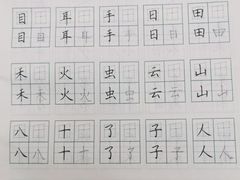 目 耳 手 日 田
目目 耳耳 手手 日日 田田
禾 火 虫 云 山
禾禾 火火 虫虫 云云 山山
八 十 了 子 人
八八 十十 了了 子子 人人